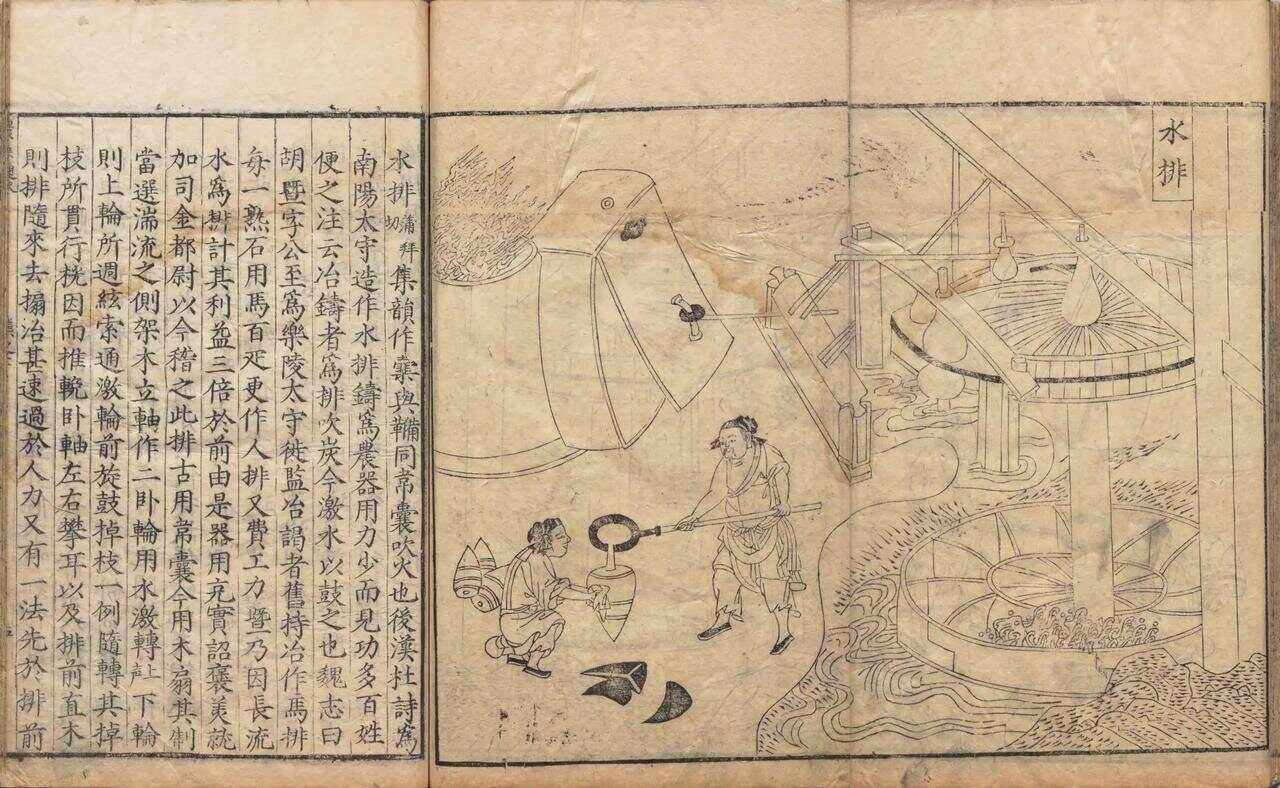 水排
水排蒲拜切集韻作橐與鞴同常囊吹火也後漢杜詩爲
南陽太守造作水排鑄爲農器用力少而見功多百姓
便之注云冶鑄者爲排吹炭今激水以鼓之也魏志曰
胡暨字公至爲樂陵太守徙監冶謁者舊持冶作馬排
每一熟石用馬百疋更作人排又費工力暨乃因長流
水爲排計其利益三倍於前由是器用充實詔褒美就
加司金都尉以今稽之此排古用常囊今用木扇其制
當選湍流之側架木立軸作二卧輪用水激轉上聲下輪
則上輪所週絃索通激輪前旋鼓掉枝一例隨轉其掉
枝所貫行桄因而推輓卧軸左右攀耳以及排前直木
則排隨來去搧冶甚速過於人力又有一法先於排前